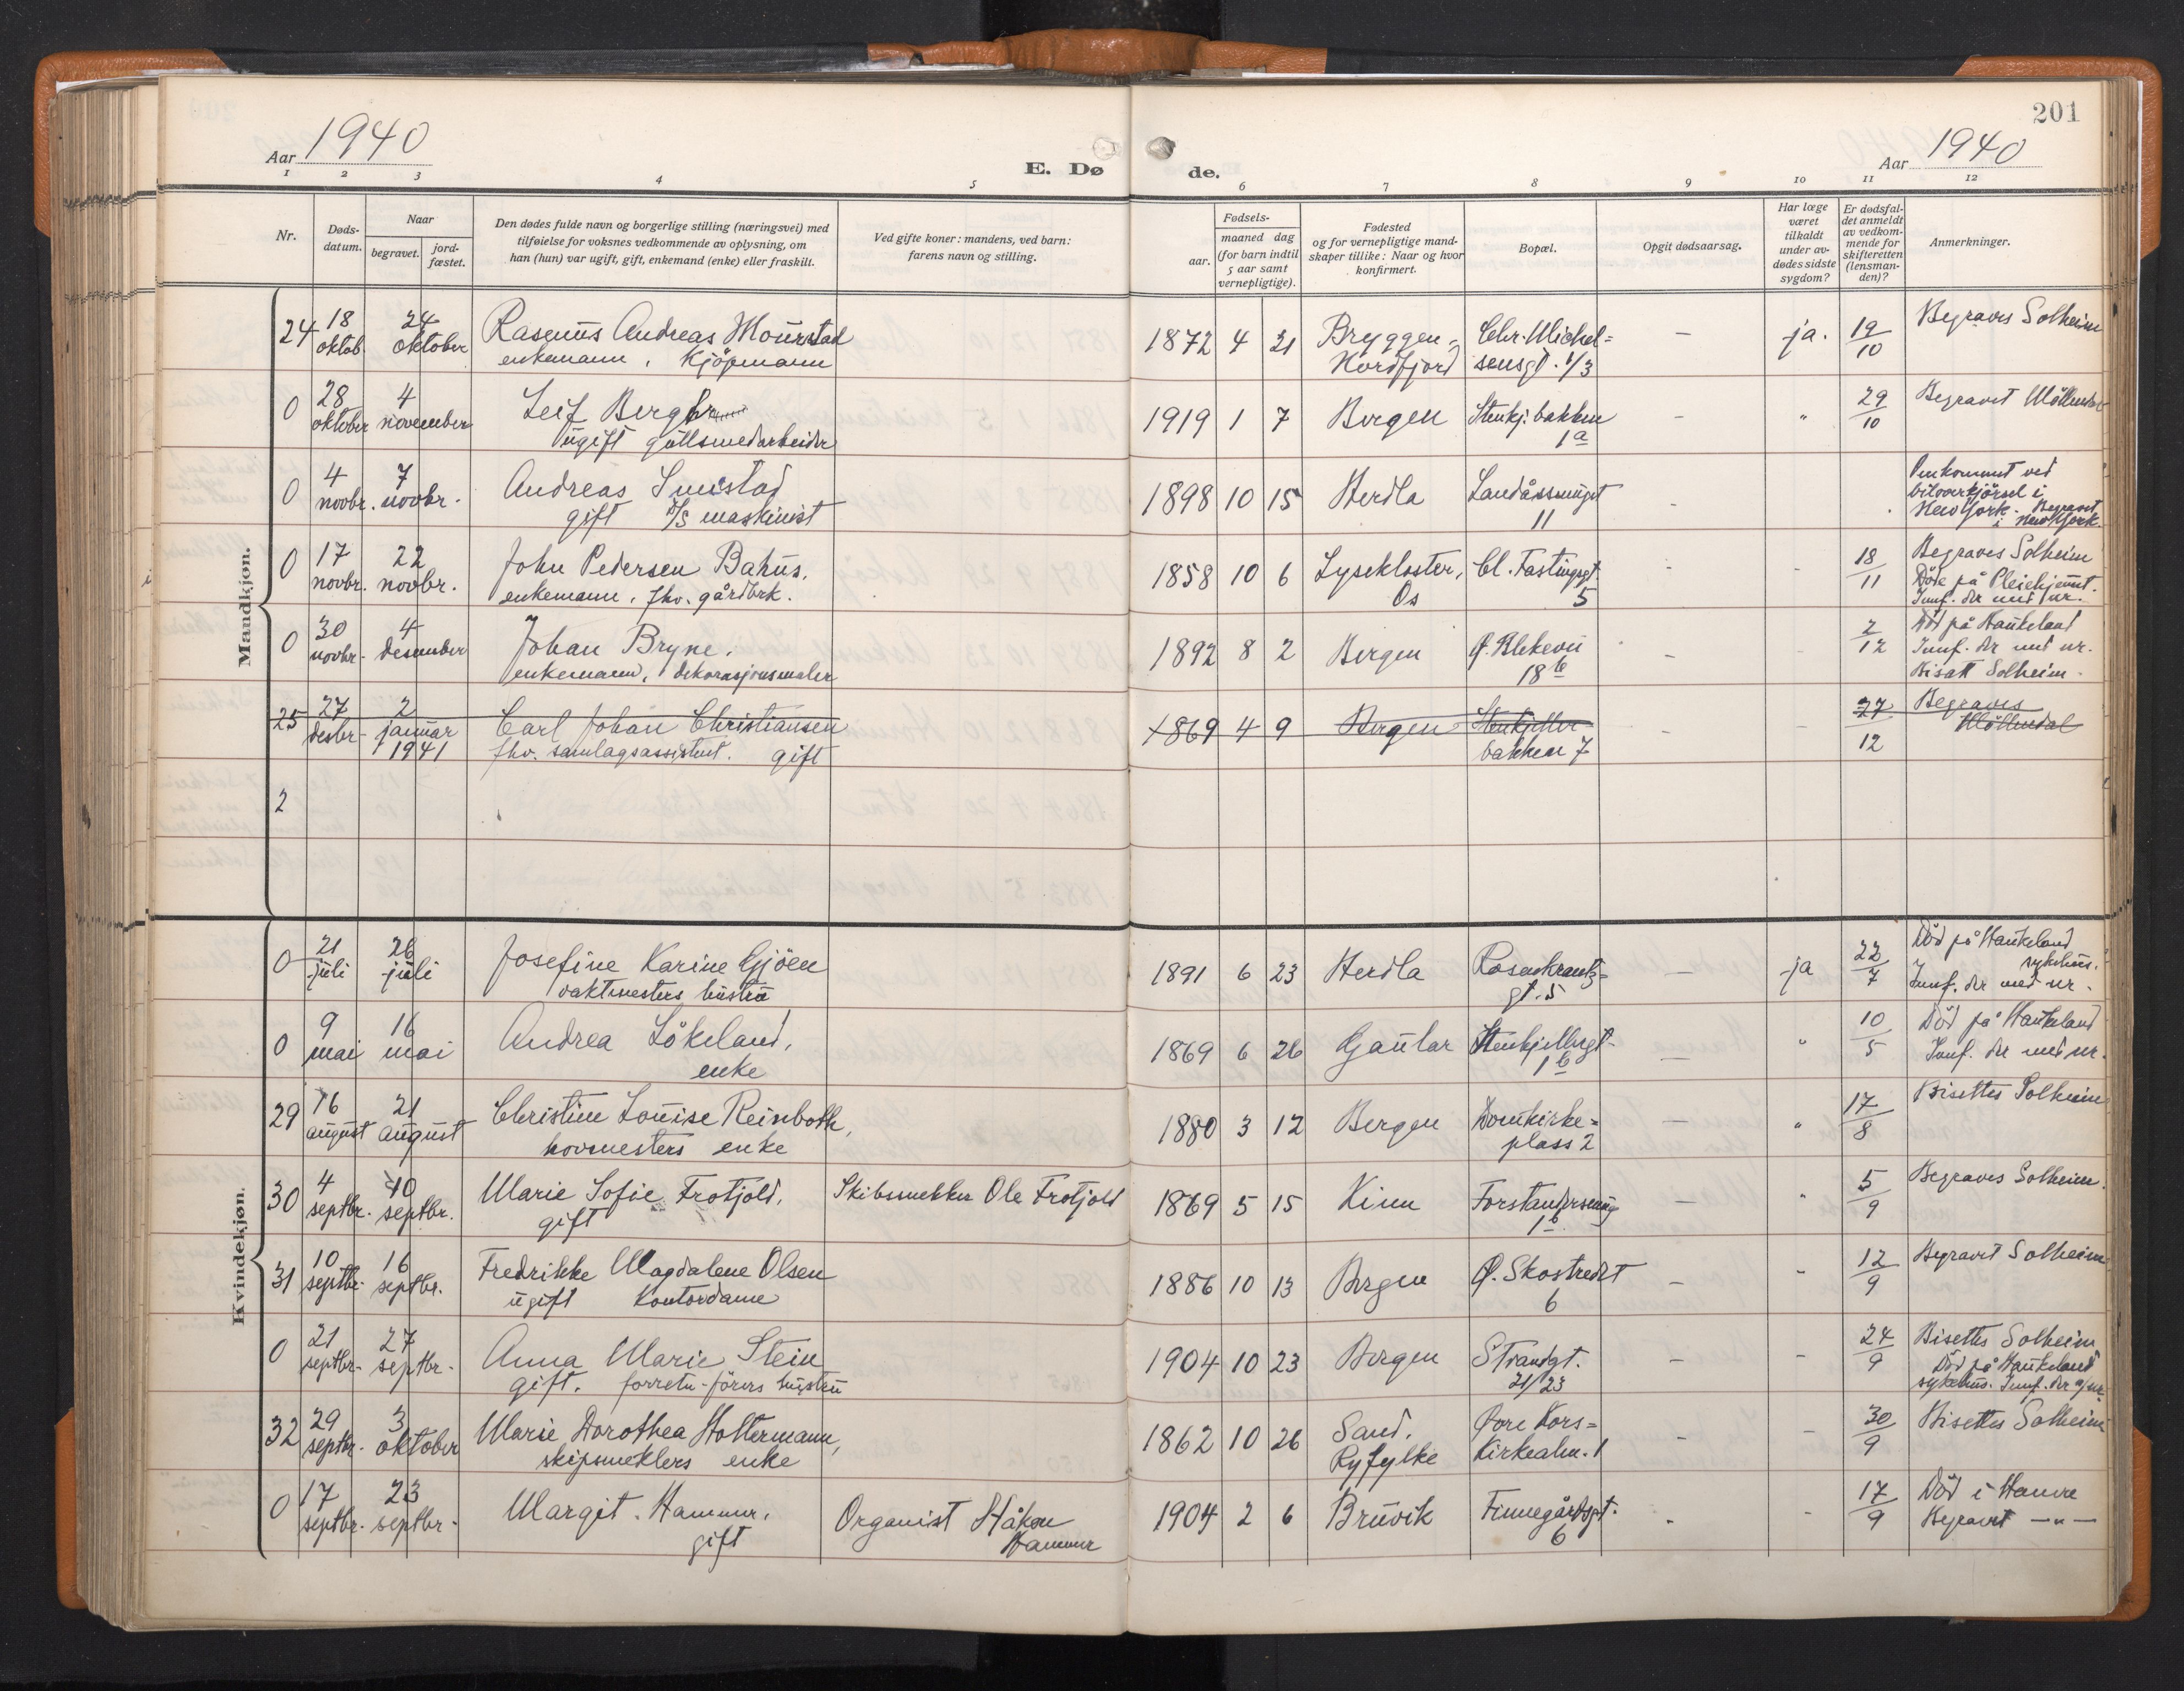 201
Aar 1940
E. Døde.
Aar 1940
1 2 3 4 5 6 7 8 9 10 11 12
Nr.
Døds-
datum.
Naar
begravet.
jord-
fæstet.
Den dødes fulde navn og borgerlige stilling (næringsvei) med
tilføielse for voksnes vedkommende av oplysning, om
han (hun) var ugift, gift, enkemand (enke) eller fraskilt.
Ved gifte koner: mandens, ved barn:
farens navn og stilling.
Fødsels-
aar.
maaned dag
(for barn indtil
5 aar samt
vernepligtige).
Fødested
og for vernepligtige mand-
skaper tillike: Naar og hvor
konfirmert.
Bopæl.
Opgit dødsaarsag.
Har læge
været
tilkaldt
under av-
dødes sidste
sygdom?
Er dødsfal-
det anmeldt
av vedkom-
mende for
skifteretten
(lensman-
den)?
Anmerkninger.
Mandkjøn.
24 18 24 Rasmus Andreas Mourstad 1872 4 21 Bryggen, Chr. Michel= — ja. 19/10 Begraves Solheim
oktob. oktober enkemann, Kjöpmann Nordfjord sensgt. 1/3
0 28 4 Leif Berg 1919 1 7 Bergen Stenkj.bakken – " 29/10 Begravet Möllendal
oktober november ugift gullsmedarbeider 1a
0 4 7 Andreas 1898 10 15 Herdla Landåssmuget - Omkommet ved
novbr. novbr. gift maskinist 11 biloverkjörsel i
New York. Begravet
i New York
0 17 22 John Pedersen Bahus, 1858 10 6 Lysekloster, Cl. Fastingsgt. - - 18/11 Begraves Solheim
novbr. novbr. enkemann, fhv. gårdbrk. Os 5 Döde på Pleiehjemmet.
Innf. der med nr.
0 30 4 Johan Bryne, 1892 8 2 Bergen Ø. Blekevei - - 2/12 Död på Haukeland
novbr. desember enkemann, dekorasjonsmaler 18b Innf. der med nr.
Bisatt Solheim.
25 27 2 Carl Johan Christiansen 1869 4 9 Bergen Stenkjeller - - 27/12 Begraves
desbr. januar fhv. samlagsassistent. gift bakken 7 Möllendal
1941
2
Kvindekjøn.
0 21 26 Josefine Karine Gjöen 1891 6 23 Herdla Rosenkrantz= — ja 22/7 Död på Haukeland
juli juli vaktmesters hustru gt. 5 sykehus.
Innf. der med nr.
0 9 16 Andrea Lökeland, 1869 6 26 Gaular Stenkjellergt. — " 10/5 Död på Haukeland
mai mai enke 1b Innf. der med nr.
29 16 21 Christine Louise Reinboth, 1880 3 12 Bergen Domkirke= — " 17/8 Bisettes Solheim
august august hovmesters enke plass 2
30 4 10 Marie Sofie Frotjold, Skibssnekker Ole Frotjold 1869 5 15 Kinn Forstandersmug - " 5/9 Begraves Solheim.
septbr. septbr. gift 1b
31 10 16 Fredrikke Magdalene Olsen 1886 10 13 Bergen Ø. Skostredet - - 12/9 Begravet Solheim
septbr. septbr. ugift Kontordame 6
0 21 27 Anna Marie Stein 1904 10 23 Bergen Strandgt. - - 24/9 Bisettes Solheim
septbr. septbr. gift, forretn.-förers hustru 21/23 Död på Haukeland
sykehus. Innf. der m/nr.
32 29 3 Marie Dorothea Holtermann, 1862 10 26 Sand, Övre Kors= - - 30/9 Bisettes Solheim
septbr. oktober skipsmeklers enke Ryfylke Kirkealm. 1
0 17 23 Margit Hammer, Organist Håkon 1904 2 6 Bruvik Finnegårdsgt. - - 17/9 Död i Hamre
septbr. septbr. gift Hammer 6 Begravet — " —